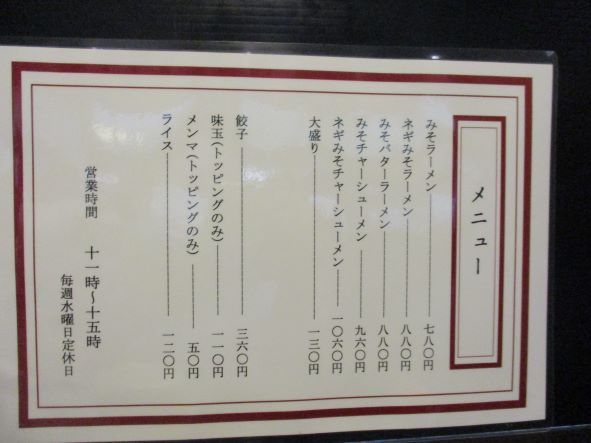 メニュー
みそラーメン 七八〇円
ネギみそラーメン 八八〇円
みそバターラーメン 八八〇円
みそチャーシューメン 九六〇円
ネギみそチャーシューメン 一〇六〇円
大盛り 一三〇円
餃子 三六〇円
味玉(トッピングのみ) 一一〇円
メンマ(トッピングのみ) 五〇円
ライス 一二〇円
営業時間 十一時〜十五時
毎週水曜日定休日